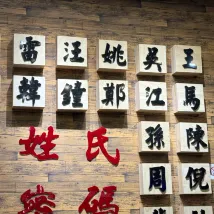 雷 汪 姚 吴 王
韓 鐘 鄭 江 馬
孫 陳
周 倪
姓 氏
碼